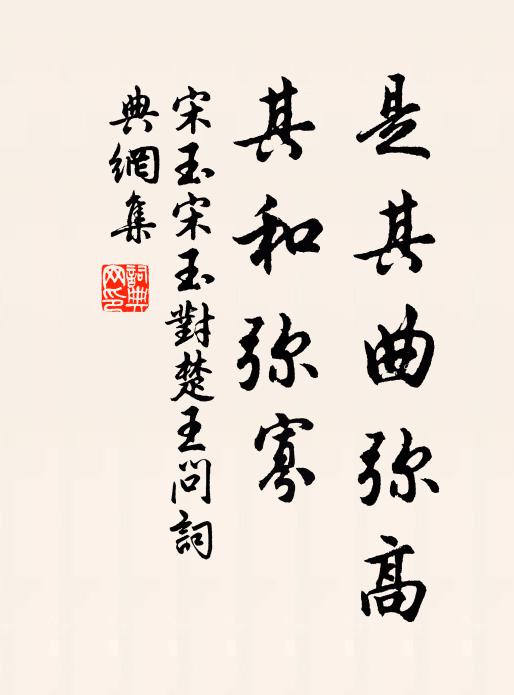 是其曲弥高
其和弥寡
宋玉宋玉對楚王問詞
典網集
詞典网印